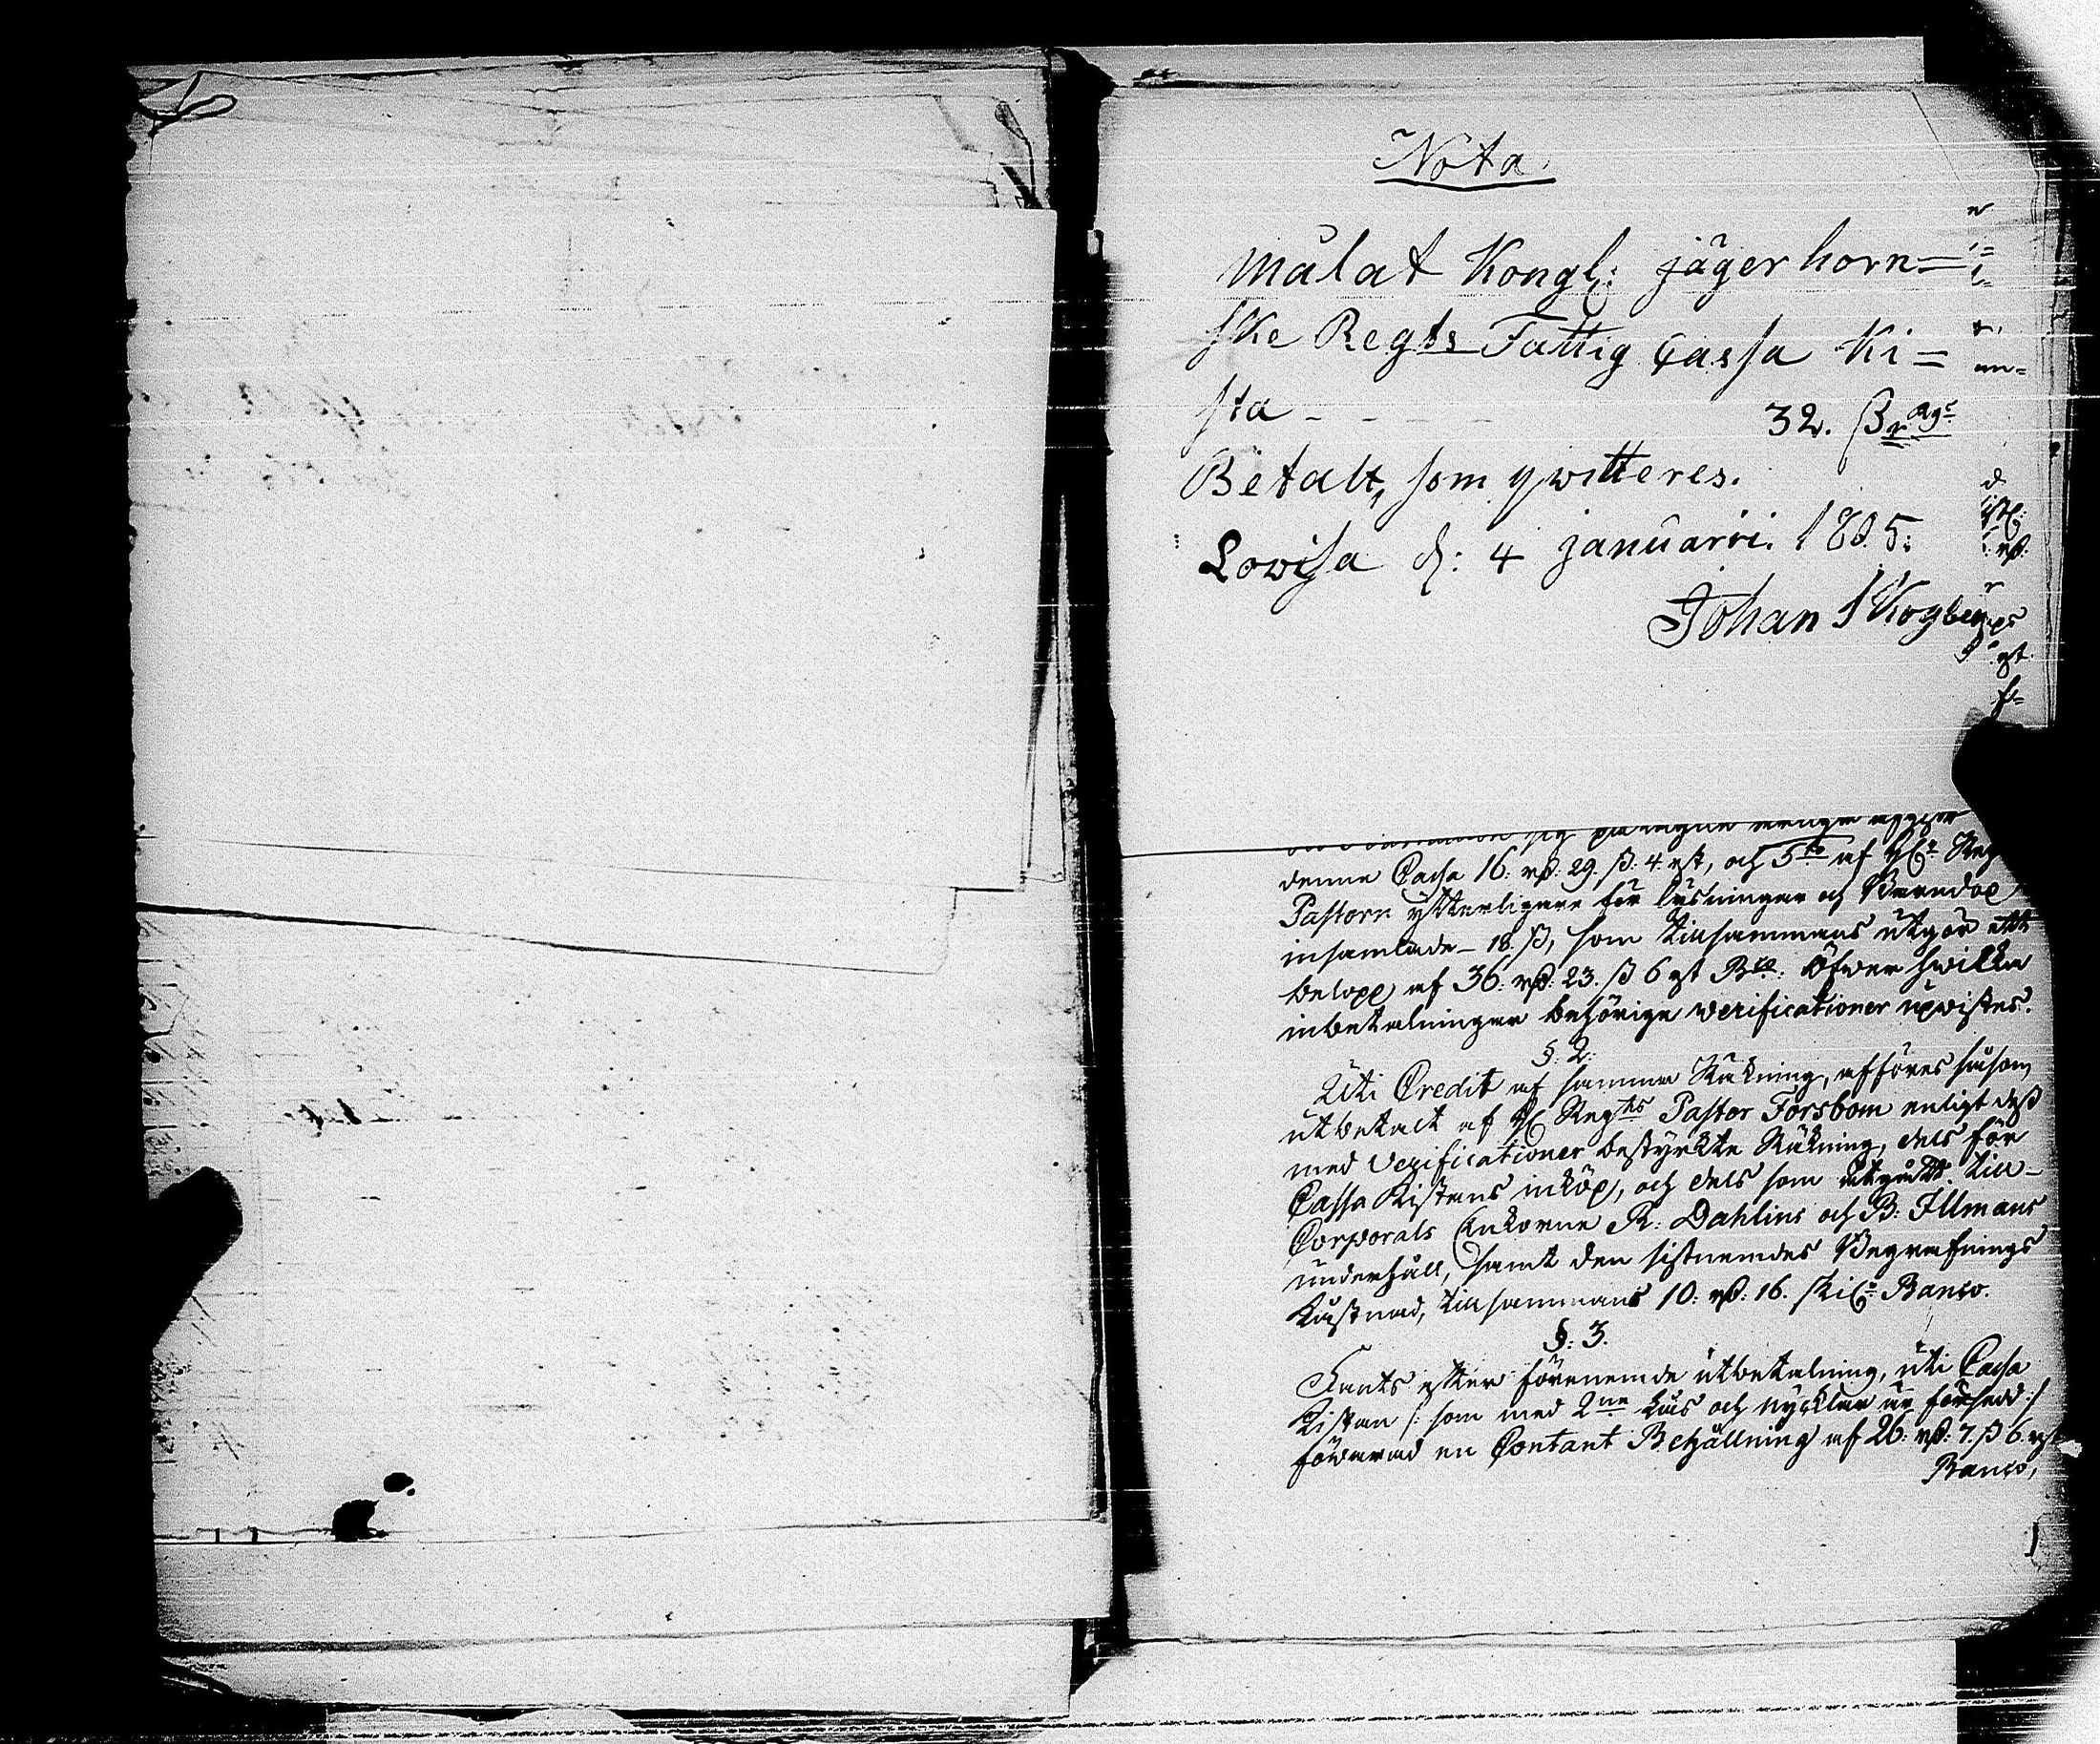 Nota.
målat Kongl: jägerhorn=
ske Regts Fattig Cassa Ki=
sta - - - - 32. ß rgs
Betalt, som qwitteres.
Lowisa d: 4 januarii. 1805:
Johan Skogberg
denne Cassa 16: rd: 29. ß. 4. rst, och 5te af H:r Reg
Pastorn ytterligare för lysningar och Barndop
insamlade - 18. ß, som tillsammans utgör ett
belopp af 36: rd: 23. ß 6 rst Bco: Öfwer hwilka
inbetalningar behörige verificationer upwistes.
§: 2:
Uti Credit af samma Räkning, afföres såsom
utbetalt af H: Regts Pastor Forsbom enligt dess
med Verificationer bestyrkte Räkning, dels för
Cassa Kistans inköp, och dels som utgådt till-
Corporals Enkorne R: Dahlins och B: Illmans
underhåll, samt den sistnemdes Begrafnings
kåstnad, tillsammans 10: rd: 16. skil: Banco.
§: 3.
Fants efter förenemde utbetalning, uti Cassa
Kistan /: som med 2ne lås och nycklar är försedd :/
förwarad en Contant Behållning af 26: rd: 7. ß 6. rst
Banco,